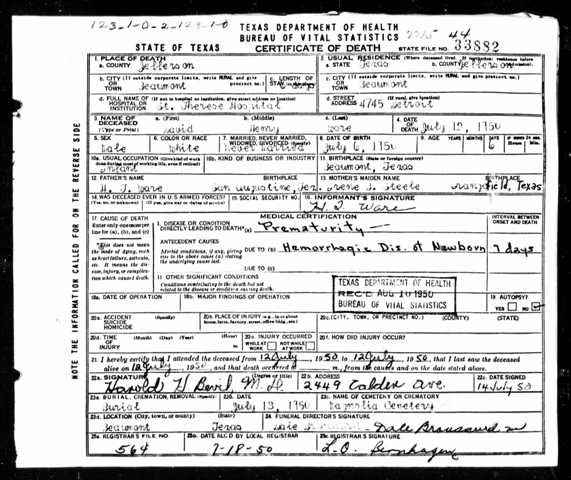 123-1-0-2-123-1-0
TEXAS DEPARTMENT OF HEALTH
BUREAU OF VITAL STATISTICS
44
STATE OF TEXAS
CERTIFICATE OF DEATH
STATE FILE NO. 33882
1. PLACE OF DEATH
a. COUNTY Jefferson
2. USUAL RESIDENCE (Where deceased lived. If institution: residence before
a. STATE Texas b. COUNTY Jefferson
b. CITY (If outside corporate limits, write RURAL and give precinct no.)
OR TOWN Beaumont
c. LENGTH OF STAY
c. CITY (If outside corporate limits, write RURAL and give precinct no.)
OR TOWN Beaumont
d. FULL NAME OF (If not in hospital or institution, give street address or location)
HOSPITAL OR INSTITUTION St. Therese Hospital
d. STREET ADDRESS 4745 Detroit
3. NAME OF DECEASED (Type or Print)
a. (First) David
b. (Middle) Henry
c. (Last) Ware
4. DATE OF DEATH July 12, 1950
5. SEX Male
6. COLOR OR RACE White
7. MARRIED, NEVER MARRIED, WIDOWED, DIVORCED
Never Married
8. DATE OF BIRTH July 6, 1950
9. AGE YEARS MONTHS 6
10a. USUAL OCCUPATION Infant
10b. KIND OF BUSINESS OR INDUSTRY
11. BIRTHPLACE (State or foreign country)
Beaumont, Texas
12. FATHER'S NAME BIRTHPLACE
H. T. Ware San Augustine, Tex.
13. MOTHER'S MAIDEN NAME BIRTHPLACE
Irene I. Steele field, Texas
14. WAS DECEASED EVER IN U.S. ARMED FORCES?
15. SOCIAL SECURITY NO.
16. INFORMANT'S SIGNATURE
H. T. Ware
MEDICAL CERTIFICATION
INTERVAL BETWEEN ONSET AND DEATH
17. CAUSE OF DEATH
Enter only one cause per line for (a), (b), and (c)
I. DISEASE OR CONDITION DIRECTLY LEADING TO DEATH* (a) Prematurity
*This does not mean the mode of dying, such as heart failure, asthenia, etc. It means the disease, injury, or complication which caused death.
ANTECEDENT CAUSES
Morbid conditions, if any, giving rise to the above cause (a) stating the underlying cause last.
DUE TO (b) Hemorrhagic Dis. of Newborn 7 days
DUE TO (c)
II. OTHER SIGNIFICANT CONDITIONS
Conditions contributing to the death but not related to the disease or condition causing death.
TEXAS DEPARTMENT OF HEALTH
REC'D AUG 10 1950
BUREAU OF VITAL STATISTICS
18a. DATE OF OPERATION
18b. MAJOR FINDINGS OF OPERATION
19. AUTOPSY? YES NO
20a. ACCIDENT SUICIDE HOMICIDE (Specify)
20b. PLACE OF INJURY
20c. (CITY, TOWN, OR PRECINCT NO.) (COUNTY) (STATE)
20d. TIME OF INJURY (Month) (Day) (Year) (Hour)
20e. INJURY OCCURRED WHILE AT WORK NOT WHILE AT WORK
20f. HOW DID INJURY OCCUR?
21. I hereby certify that I attended the deceased from 12 July, 1950, to 12 July, 1950, that I last saw the deceased
alive on 12 July, 1950, and that death occurred m., from the causes and on the date stated above.
22a. SIGNATURE (Degree or title)
Harold H Bevil M.D.
22b. ADDRESS 2449 Calder Ave.
22c. DATE SIGNED 14 July 50
23a. BURIAL, CREMATION, REMOVAL (Specify)
Burial
23b. DATE July 13, 1950
23c. NAME OF CEMETERY OR CREMATORY
Magnolia Cemetery
23d. LOCATION (City, town, or county) (State)
Beaumont Texas
24. FUNERAL DIRECTOR'S SIGNATURE
Dale Broussard
25a. REGISTRAR'S FILE NO. 564
25b. DATE REC'D BY LOCAL REGISTRAR 7-18-50
25c. REGISTRAR'S SIGNATURE
NOTE THE INFORMATION CALLED FOR ON THE REVERSE SIDE